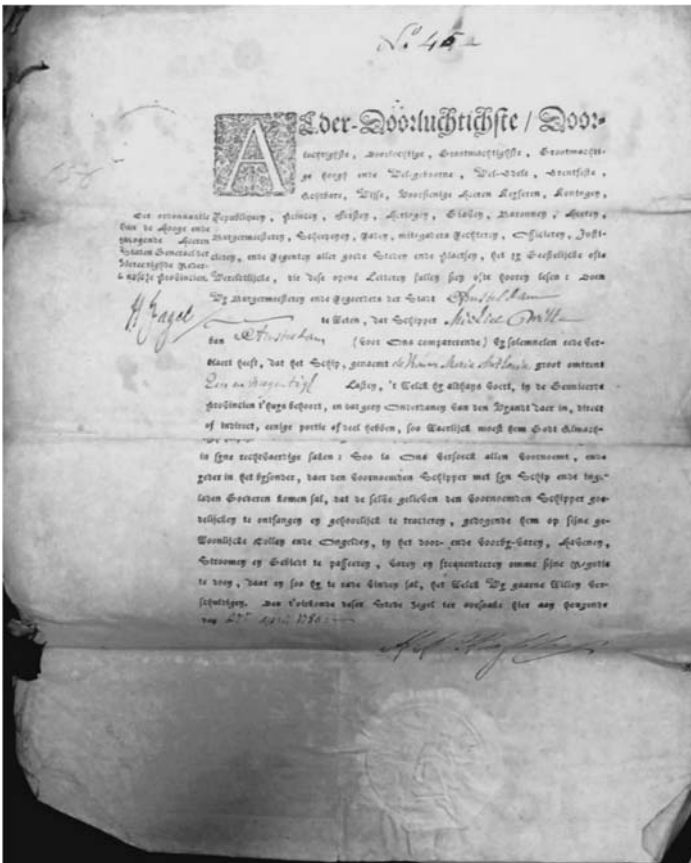 No 45
ALder-Doorluchtichste / Door-
luchtighste, Doorluchtige, Grootmachtighste, Grootmachti-
ge Hoogh ende Wel-geboorne, Wel-Edele, Erentfeste,
Achtbare, Wijse, Voorsienige Heeren Keyseren, Koningen,
Republiquen, Princen, Hertogen, Graven, Baronnen, Heeren,
Burgermeesteren, Schepenen, Raden, mitsgaders Rechteren, Officieren, Justi-
cieren, ende Regenten aller goede Steden ende Plaetsen, het zy Geestelijcke ofte
Wereltlijcke, die dese opene Letteren sullen sien ofte hooren lesen: Doen
Ter ordonnantie
van de Hooge ende
Mogende Heeren
Staten Generael der
Vereenighde Neder-
landsche Provincien.
H Fagel
Wy Burgermeesteren ende Regeerders der Stadt Amsterdam
te Weten, dat Schipper
van Amsterdam (voor Ons comparerende) by solemnelen eede ver-
klaert heeft, dat het Schip, genaemt de Vrouw Maria groot omtrent
Lasten, 't Welck hy althans voert, in de Geunieerde
Provincien t'huys behoort, en dat geen Onderdanen van den Vyandt daer in, direct
of indirect, eenige portie of deel hebben, soo Waerlijck moest hem Godt Almach-
in sijne rechtvaerdige saken: Soo is Ons versoeck allen voornoemt, ende
yeder in het bysonder, daer den voornoemden Schipper met sijn Schip ende inge-
laden Goederen komen sal, dat de selve gelieven den voornoemden Schipper goe-
delijcken te ontfangen en gehoorlijck te tracteren, gedogende hem op sijne ge-
Woonlijcke Tollen ende Ongelden, in het door- ende voorby-varen, Havenen,
Stroomen en Gebiedt te passeren, varen en frequenteren omme sijne Negotie
te doen, daer en soo hy te rade vinden sal, het Welck Wy gaerne Willen ver-
schuldigen. Des t'oirkonde deser Stede Zegel ter oorsake hier aen hangende
den April